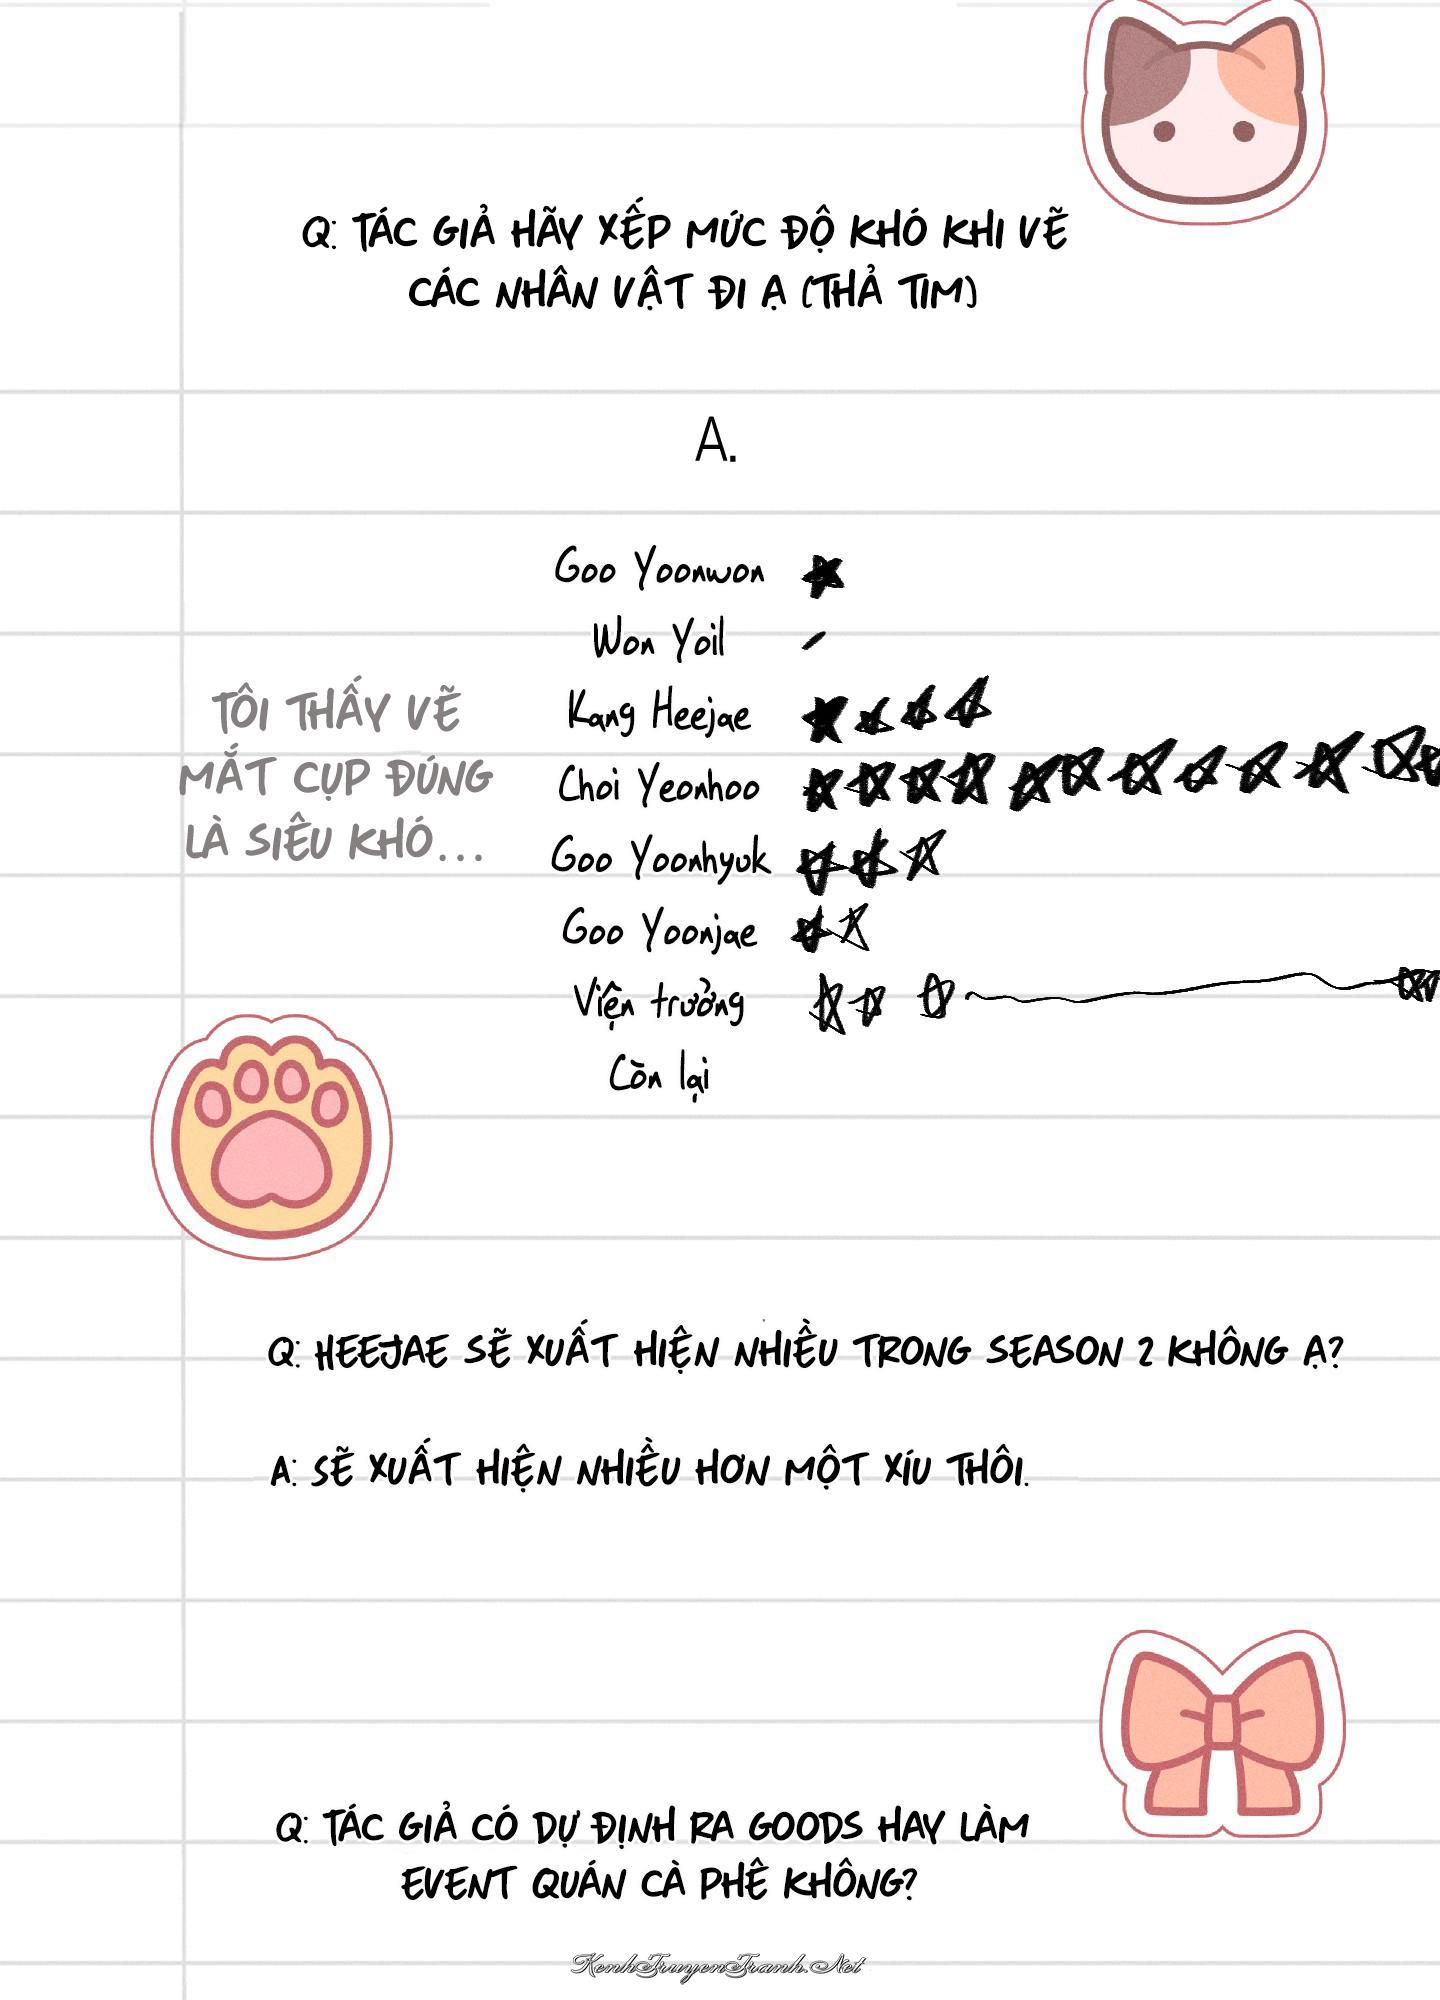 Q: TÁC GIẢ HÃY XẾP MỨC ĐỘ KHÓ KHI VẼ
CÁC NHÂN VẬT ĐI Ạ (THẢ TIM)
A.
Goo Yoonwon
Won Yoil
Kang Heejae
Choi Yeonhoo
Goo Yoonhyuk
Goo Yoonjae
Viện trưởng
Còn lại
TÔI THẤY VẼ
MẮT CỤP ĐÚNG
LÀ SIÊU KHÓ...
Q: HEEJAE SẼ XUẤT HIỆN NHIỀU TRONG SEASON 2 KHÔNG Ạ?
A: SẼ XUẤT HIỆN NHIỀU HƠN MỘT XÍU THÔI.
Q: TÁC GIẢ CÓ DỰ ĐỊNH RA GOODS HAY LÀM
EVENT QUÁN CÀ PHÊ KHÔNG?
KenhTruyenTranh.Net